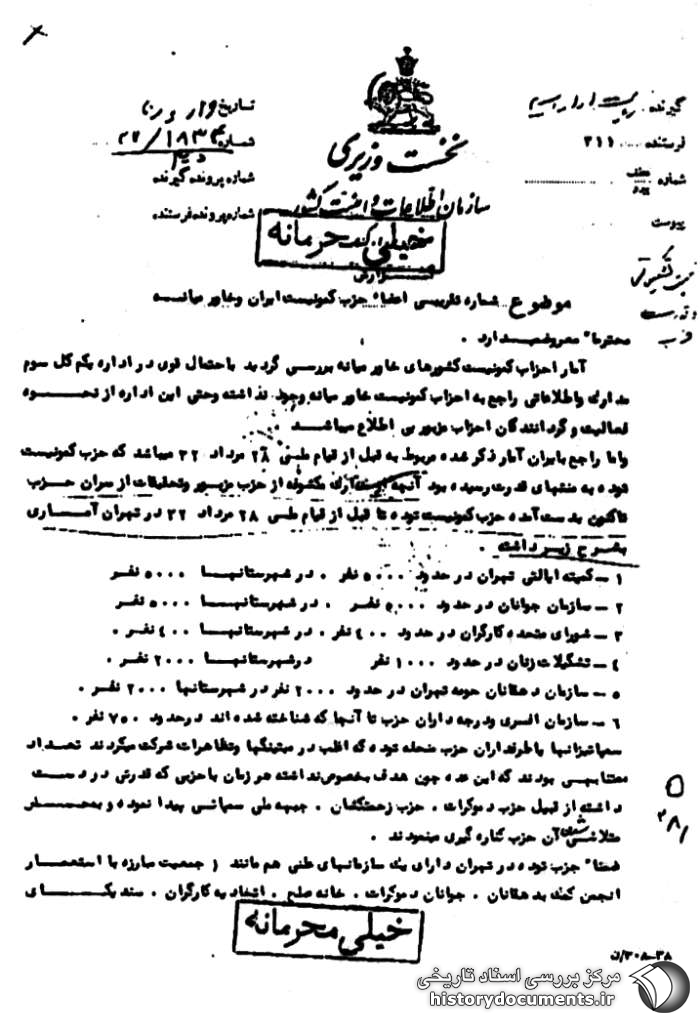 گیرنده
فرستنده ۳۱۱
شماره
پیوست
تاریخ
شماره ۲۲/۱۸۳۴
شماره پرونده گیرنده
شماره پرونده فرستنده
نخست وزیری
سازمان اطلاعات و امنیت کشور
خیلی محرمانه
گزارش
موضوع شماره تقریبی اعضاء حزب کمونیست ایران و خاور میانه
محترما معروض میدارد .
آمار احزاب کمونیست کشورهای خاور میانه بررسی گردید باحتمال قوی در اداره یکم کل سوم
مدارک و اطلاعاتی راجع به احزاب کمونیست خاور میانه وجود نداشته وحتی این اداره از نحوه
فعالیت و گردانندگان احزاب مزبور بی اطلاع میباشد .
واما راجع بایران آمار ذکر شده مربوط به قبل از قیام ملی ۲۸ مرداد ۳۲ میباشد که حزب کمونیست
توده به منتهای قدرت رسیده بود آنچه مکشوفه از حزب مزبور وتحقیقات از سران حزب
تاکنون بدست آمده حزب کمونیست توده تا قبل از قیام ملی ۲۸ مرداد ۳۲ در تهران آماری
بشرح زیر داشته .
۱ – کمیته ایالتی تهران در حدود ۵۰۰۰ نفر . در شهرستانها ۵۰۰۰ نفر
۲ – سازمان جوانان در حدود ۵۰۰۰ نفر . در شهرستانها ۵۰۰۰ نفر
۳ – شورای متحده کارگران در حدود ۴۰۰ نفر . در شهرستانها ۴۰۰ نفر .
۴ – تشکیلات زنان در حدود ۱۰۰۰ نفر درشهرستانها ۲۰۰۰ نفر .
۵ – سازمان دهقانان حومه تهران در حدود ۲۰۰۰ نفر در شهرستانها ۲۰۰۰ نفر .
۶ – سازمان افسری ودرجه داران حزب تا آنها که شناخته شده اند درحدود ۷۵۰ نفر .
سمپاتیزانها یا طرفداران حزب منحله توده که اغلب در میتینگها وتظاهرات شرکت میکردند تعداد
معتنابهی بودند که این عده چون هدف بخصوص نداشته هر زمان با حزبی که قدرتی در دست
داشته از قبیل حزب دموکرات . حزب زحمتکشان . جبهه ملی سمپاتی پیدا نموده و بمحض
متلاشی شدن آن حزب کناره گیری مینمودند .
ضمنا حزب توده در تهران دارای یک سازمانهای علنی هم مانند ( جمعیت مبارزه با استعمار
انجمن کمک بدهقانان . جوانان دموکرات . خانه صلح . اتحادیه کارگران . سندیکای
خیلی محرمانه
۳۸–۳۰۸/ن
مرکز بررسی اسناد تاریخی
historydocuments.ir